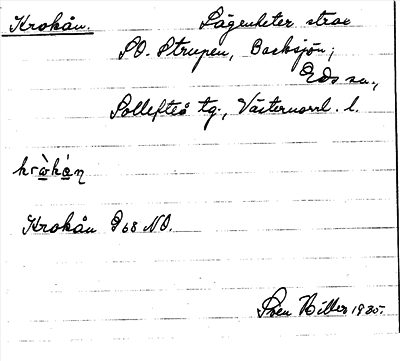 Krokån. Lägenheter strax
SO. Strupen, Backsjön,
Eds sn.,
Sollefteå tg., Västernorrl. l.
krὼkȧ̀n
Krokån G68 NO.
Sven Hiller 1935.